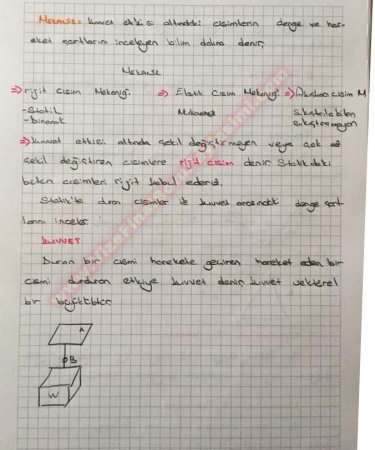 Mekanik: kuvvet etkisi altındaki cisimlerin denge ve har-
eket şartlarını inceleyen bilim dalına denir.
Mekanik
⇒ rijit cisim Mekaniği. ⇒ Elastik Cisim Mekaniği ⇒ Akışkan cisim M
- Statik Mukavemet Sıkıştırılabilen
- Dinamik Sıkıştırılamayan
⇒ kuvvet etkisi altında şekil değiştirmeyen veya çok az
şekil değiştiren cisimlere rijit cisim denir. Statikdeki
bütün cisimleri rijit kabul ederiz.
Statik'te duran cisimler ile kuvvet arasındaki denge şart-
larını inceler.
KUVVET
Duran bir cismi harekete geçiren hareket eden bir
cismi durduran etkiye kuvvet denir. kuvvet vektörel
bir büyüklüktür.
A
B
W